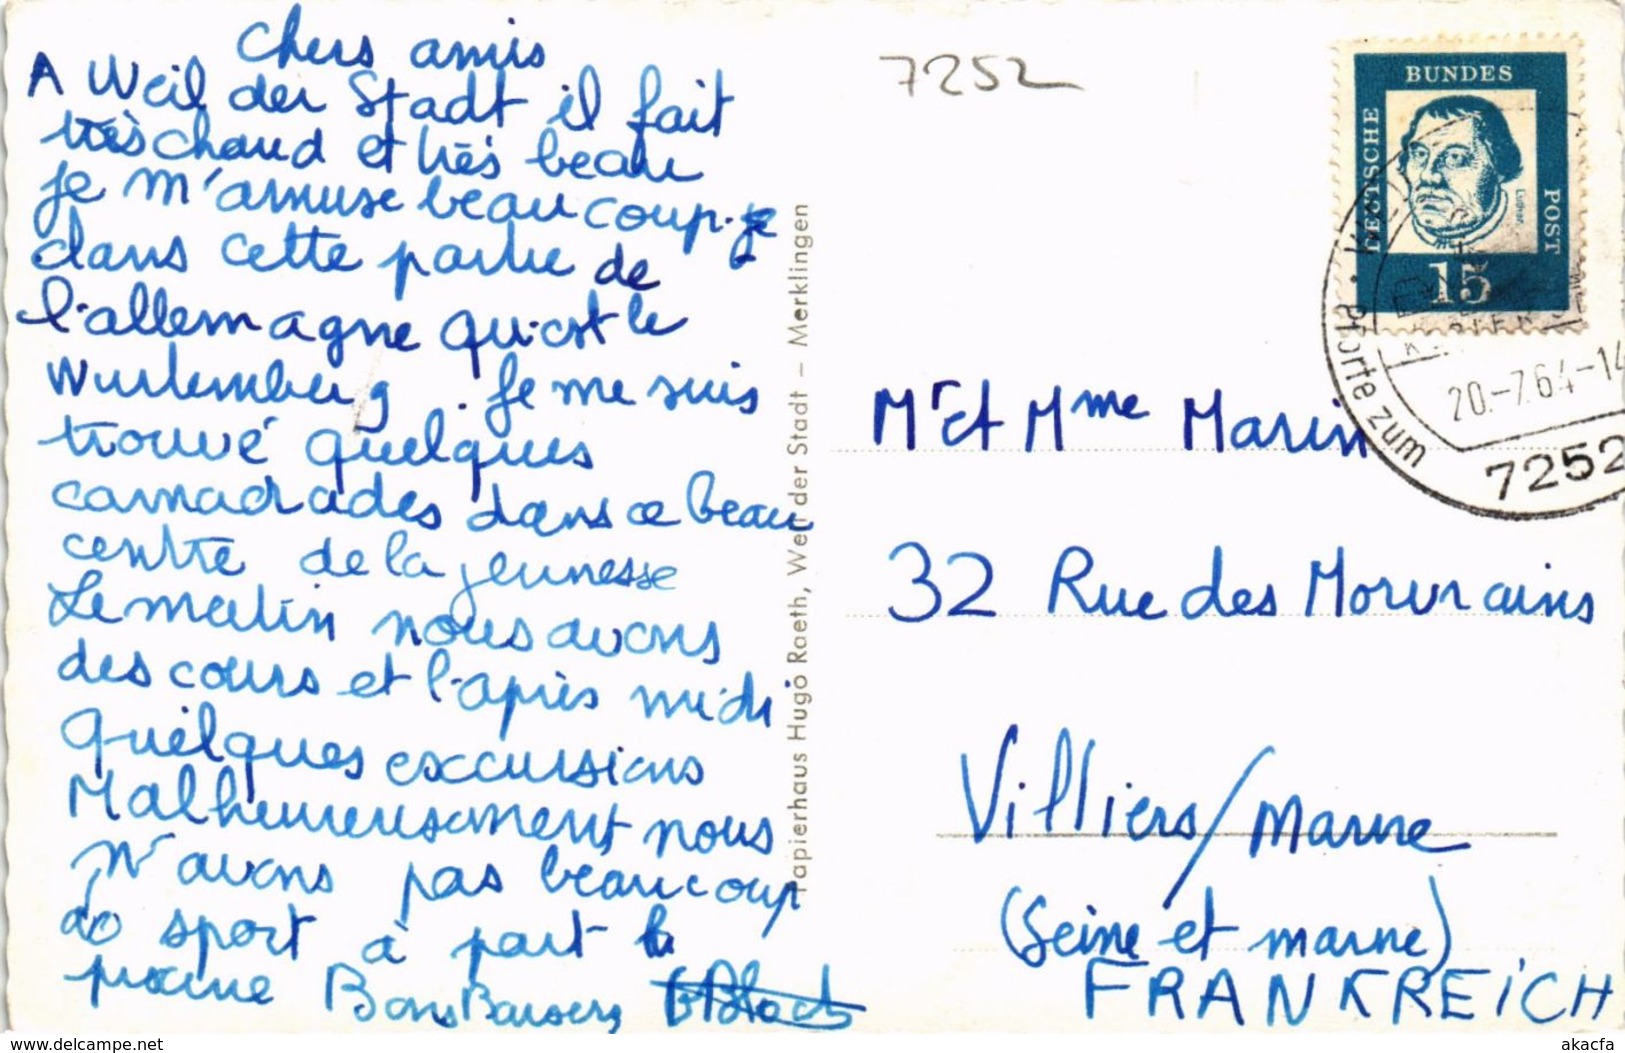 Chers amis
A Weil der Stadt il fait
très chaud et très beau
je m'amuse beaucoup je
dans cette partie de
l'allemagne qui est le
Wurtemberg. Je me suis
trouvé quelques
camarades dans ce beau
centre de la jeunesse
Le matin nous avons
des cours et l'après midi
quelques excursions
Malheureusement nous
N'avons pas beaucoup
do sport à part la
piscine Bons Baisers
Papierhaus Hugo Raeth, Weil der Stadt – Merklingen
7252
DEUTSCHE BUNDES POST
Luther
15
Pforte zum
20.-7.64-14
7252
Mr et Mme Marin
32 Rue des Morvrains
Villiers/Marne
(Seine et marne)
FRANKREiCH
www.delcampe.net
akacfa